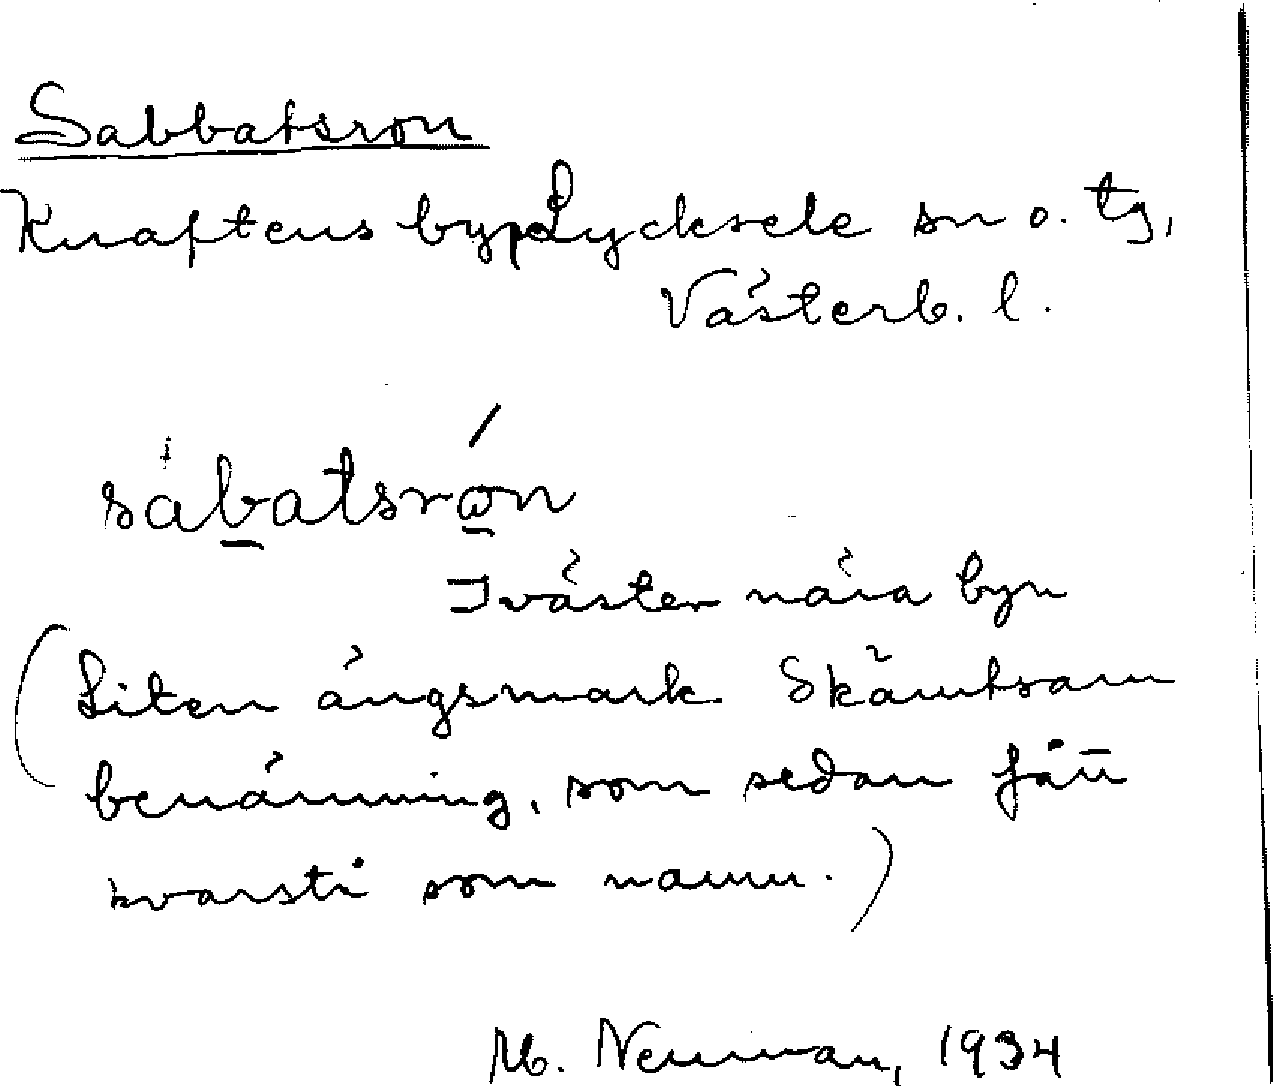 Sabbatsron
Knaftens by, Lycksele sn o. tg,
Västerb. l.
sábatsrón
I väster nära byn
(Liten ängsmark. Skämtsam
benämning, som sedan fått
kvarstå som namn.)
M. Neuman, 1934